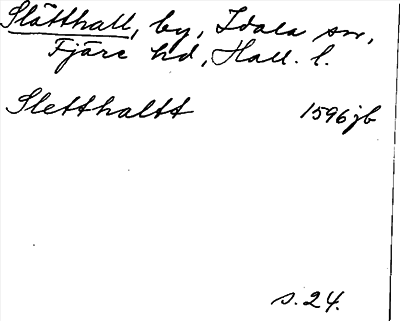 Slätthall, by, Idala sn,
Fjäre hd, Hall. l.
Sletthaltt 1596 jb
s. 24.